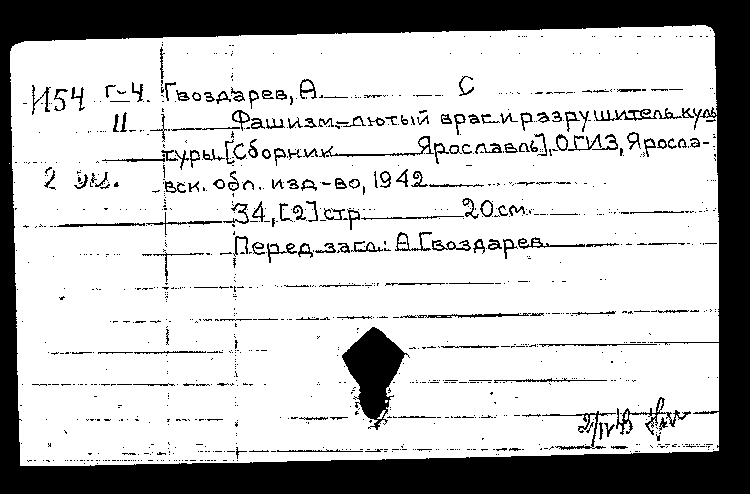 И54 Г-4 Гвоздарев, А. С
II Фашизм-лютый враг и разрушитель куль
туры. [Сборник Ярославль], ОГИЗ, Яросла-
2 эк. вск. обл. изд-во, 1942
34, [2] стр. 20см.
Перед загл.: А Гвоздарев.